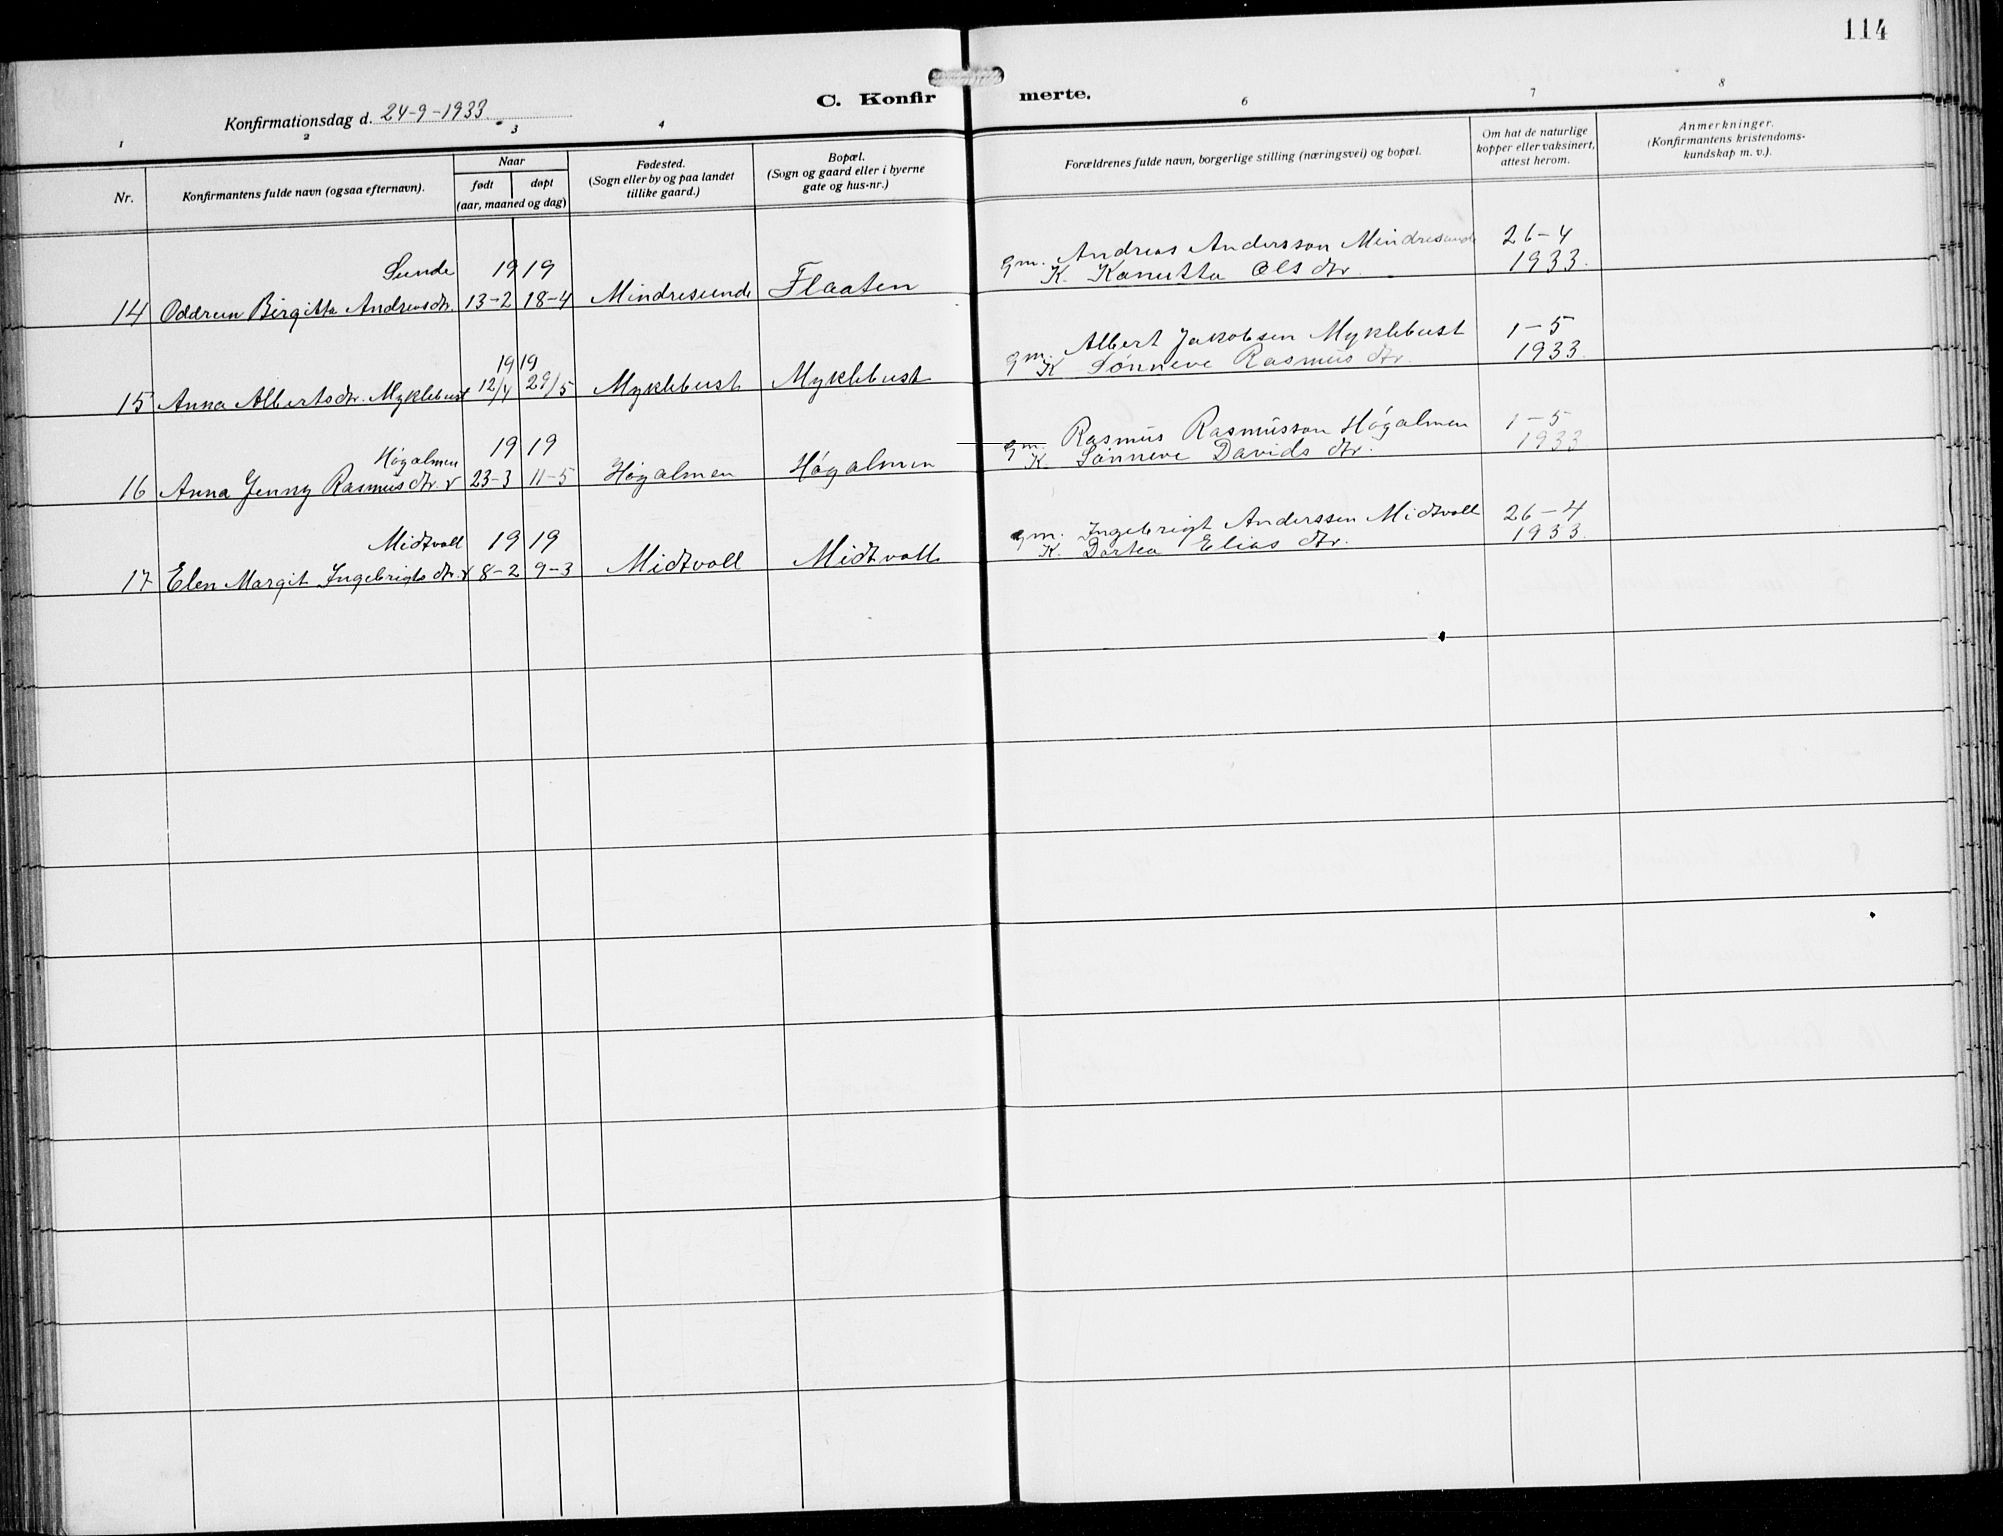 114
C. Konfirmerte.
Konfirmationsdag d. 24-9-1933
1 2 3 4 6 7 8
Nr.
Konfirmantens fulde navn (ogsaa efternavn).
Naar
født døpt
(aar, maaned og dag)
Fødested.
(Sogn eller by og paa landet
tillike gaard.)
Bopæl.
(Sogn og gaard eller i byerne
gate og hus-nr.)
Forældrenes fulde navn, borgerlige stilling (næringsvei) og bopæl.
Om hat de naturlige
kopper eller vaksinert,
attest herom.
Anmerkninger.
(Konfirmantens kristendoms-
kundskap m. v.).
Sunde 19 19 gm. Andreas Andersson Mindresunde 26-4
14 Oddrun Birgitta Andreasdtr. 13-2 18-4 Mindresunde Flaaten K. Kanutta Olsdtr. 1933.
19 19 gm. Albert Jakobsen Myklebust 1-5
15 Anna Albertsdtr. Myklebust 12/4 29/5 Myklebust Myklebust K Sønneve Rasmusdtr. 1933
Høgalmen 19 19 gm. Rasmus Rasmusson Høgalmen 1-5
16 Anna Jenny Rasmusdtr. 23-3 11-5 Høgalmen Høgalmen K. Sønneve Davidsdtr. 1933
Midtvoll 19 19 gm. Ingebrigt Anderssen Midtvoll 26-4
17 Elen Margit Ingebrigtsdtr. 8-2 9-3 Midtvoll Midtvoll K. Dortea Eliasdtr. 1933.